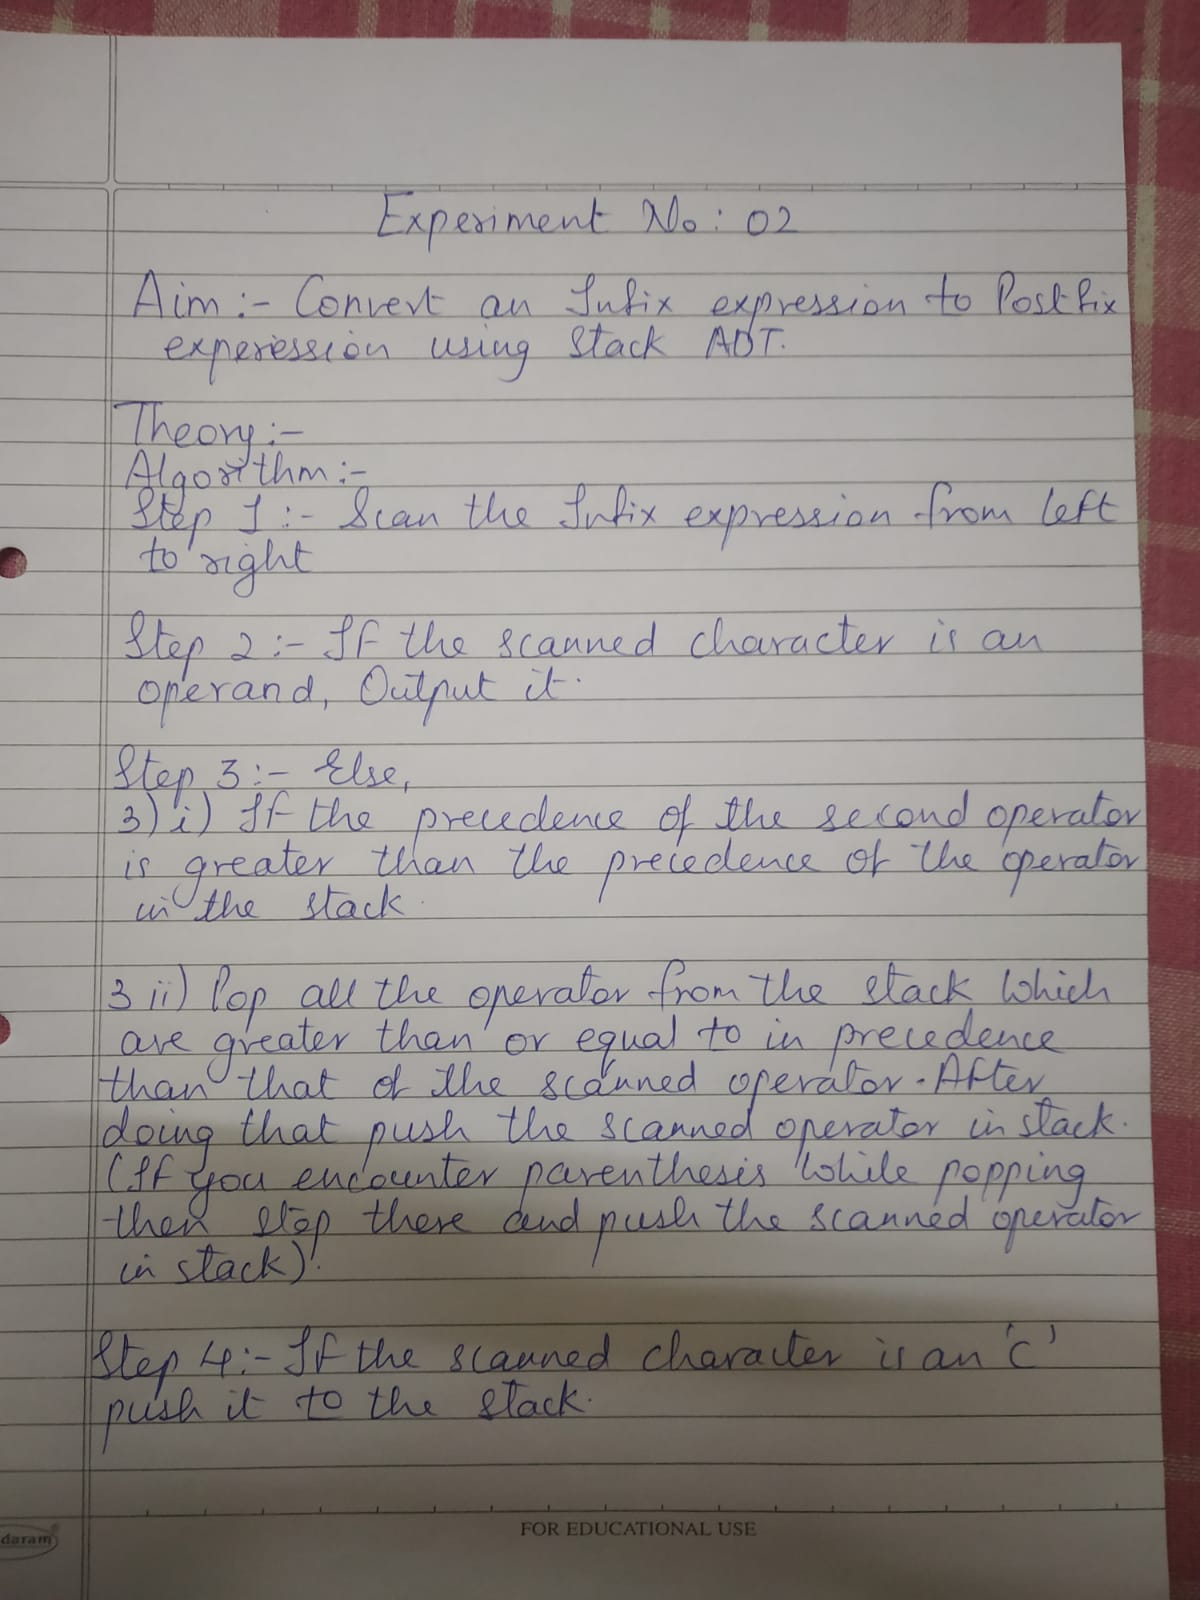 Experiment No: 02
Aim :- Convert an Infix expression to Postfix
experession using Stack ADT.
Theory :-
Algorithm :-
Step 1 :- Scan the Infix expression from left
to right
Step 2 :- If the scanned character is an
operand, Output it.
Step 3 :- Else,
3) i) If the precedence of the second operator
is greater than the precedence of the operator
in the stack.
3 ii) Pop all the operator from the stack which
are greater than or equal to in precedence
than that of the scanned operator. After
doing that push the scanned operator in stack.
(If you encounter parenthesis while popping
then stop there and push the scanned operator
in stack).
Step 4 :- If the scanned character is an '('
push it to the stack.
FOR EDUCATIONAL USE
daram